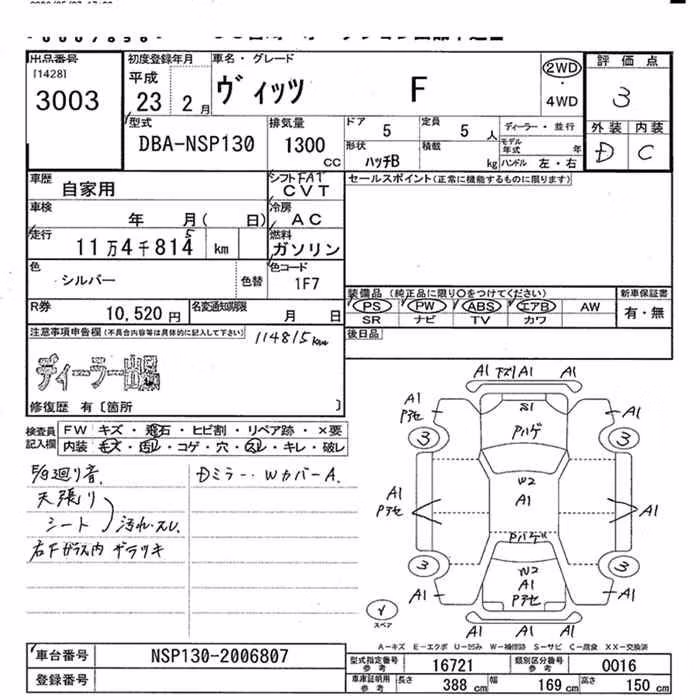 出品番号
[1428]
3003
初度登録年月
平成
23 2月
車名・グレード
ヴィッツ F
2WD
・
4WD
評価点
3
外装 内装
D C
型式
DBA-NSP130
排気量
1300
CC
ドア 5
定員 5人
ディーラー・並行
形状
ハッチB
積載 kg
モデル年式 年
ハンドル 左・右
車歴
自家用
シフト FAT
CVT
セールスポイント(正常に機能するものに限ります)
車検
年 月( 日)
冷房
AC
走行
11万4千814 km
5
燃料
ガソリン
色
シルバー
色替
色コード
1F7
R券
10,520円
名変通知期限
月 日
装備品 (純正品に限り○をつけてください)
PS PW ABS エアB AW
SR ナビ TV カワ
新車保証書
有・無
後日品
注意事項申告欄(不具合内容等は具体的に記入して下さい)
114815km
ディーラー出品
修復歴 有〔箇所 〕
検査員
記入欄
FW キズ・飛石・ヒビ割・リペア跡・×要
内装 毛ズ・汚レ・コゲ・穴・スレ・キレ・破レ
廻り音
Dミラー・WカバーA.
天張り
シート 汚れ・スレ
右Fガラス内 ザラツキ
A1 下スリA1 A1
A1
Pアセ
S1
Pハゲ
A1
3
3
W2
A1
A1
Pアセ
A1
Pハゲ
3
3
W2
A1
Pアセ
A1
A1
A1
スペア
A-キズ E-エクボ U-凹み W-補修跡 S-サビ C-腐食 XX-交換済
車台番号
NSP130-2006807
登録番号
型式指定番号
参考
16721
類別区分番号
参考
0016
車庫証明用
参考
長さ 388cm
幅 169cm
高さ 150cm